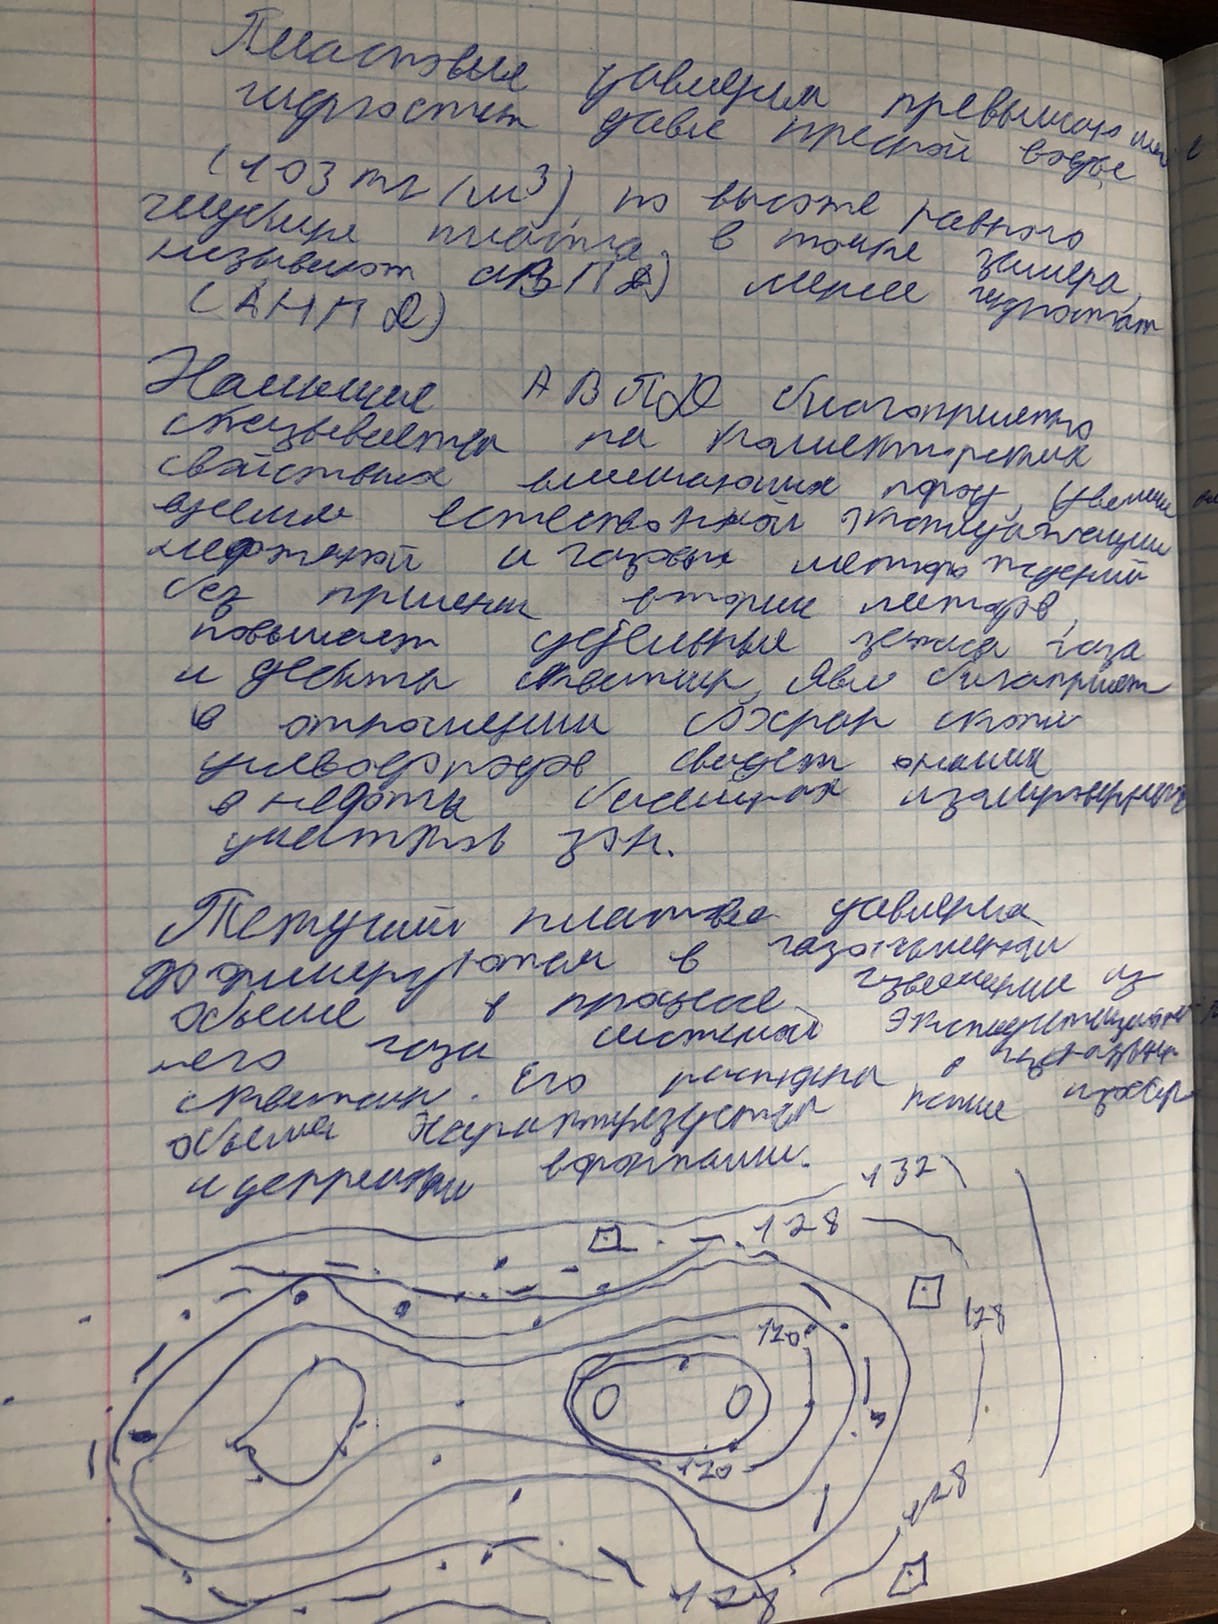 Пластовые давления превышающие
гидростат давле пресной воды
(103 кг/м³), по высоте равного
глубине пласта в точке замера,
называют АВПД, менее гидростат
(АНПД)
Наличие АВПД благоприятно
сказывается на коллекторских
свойствах вмещающих пород, увелич
время естественной эксплуатации
нефтяной и газовых месторождений
без примен вторич методов,
повышает удельные запаса газа
и дебиты скважин, явл благоприят
в отношении сохран скопл
углеводородов, свидет о налич
в нефты бассейнах изолированных
участков зон.
Текущий пластовое давления
формируются в газонасыщенном
объеме в процессе извлечении из
него газа системой эксплуатацион
скважин. Его распредел в газонасыщ
объеме характеризуется изобар
и депрессион воронками.
132
128
128
120
120
128
128